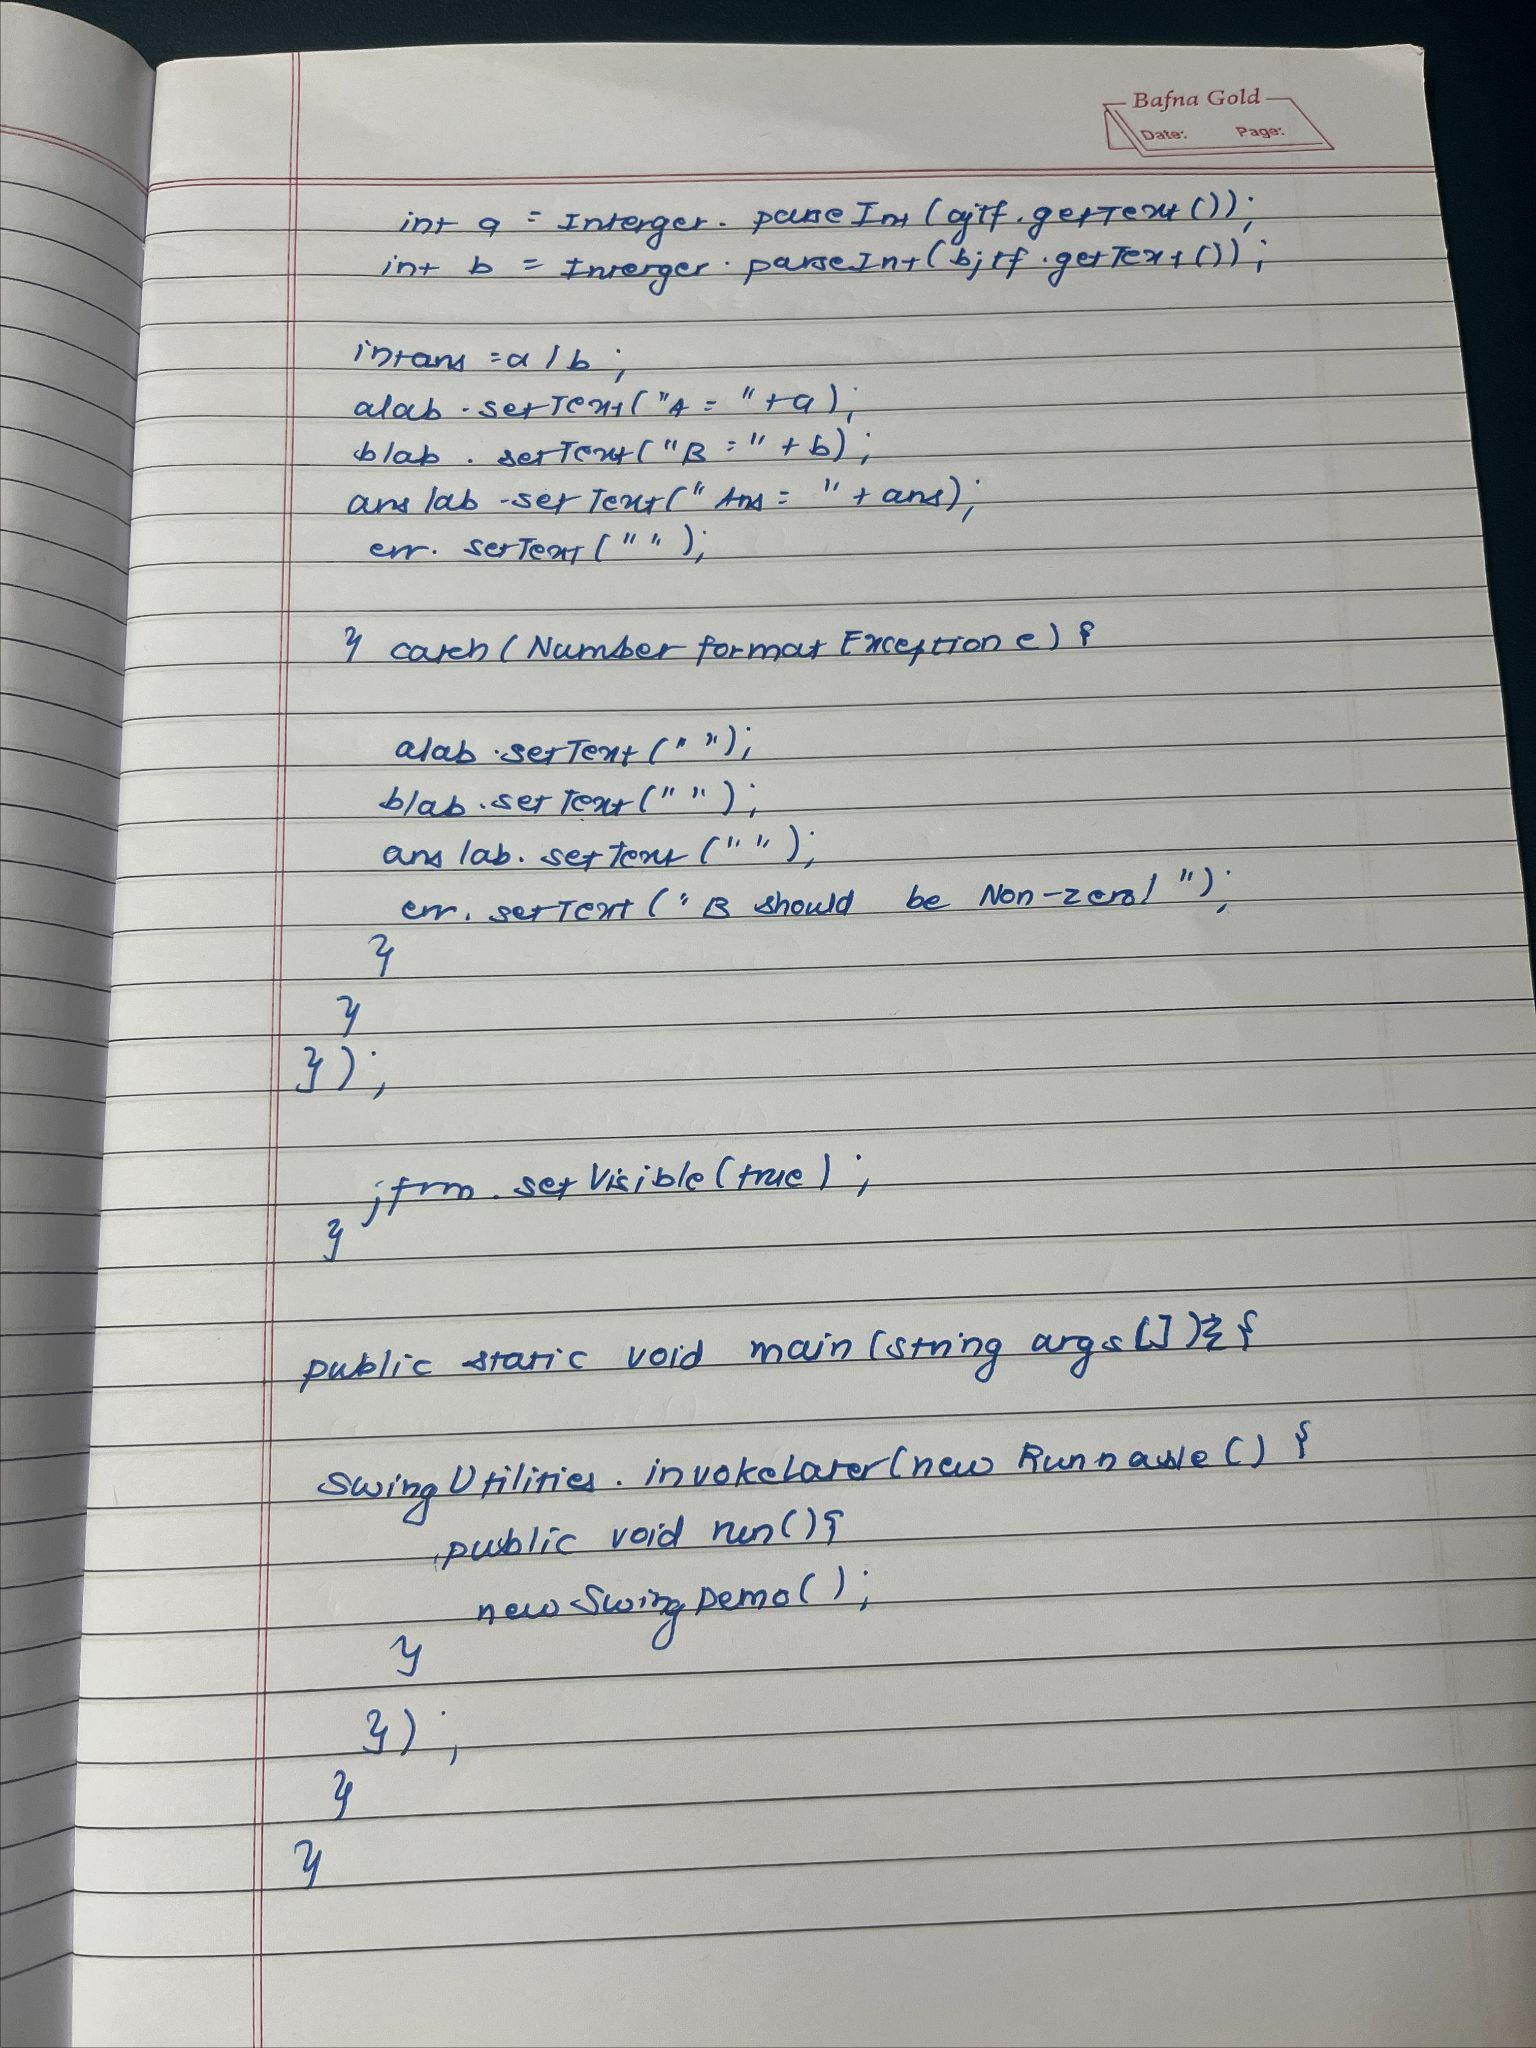 Bafna Gold
Date: Page:
int a = Interger. parseInt (ajtf.getText());
int b = Interger. parseInt (bjtf.getText());
int ans = a / b ;
alab.setText("A = "+a);
blab. setText("B =" + b);
ans lab.setText("Ans = " + ans);
err. setText(" ");
} catch (Number format Exception e) {
alab.setText (" ");
blab.set Text (" ");
ans lab. set Text (" ");
err. setText ("B should be Non-zero! ");
}
}
});
jfrm.set Visible (true);
}
public static void main (string args []) {
Swing Utilities. invokeLater(new Runnable () {
public void run(){
new Swing Demo();
}
});
}
}